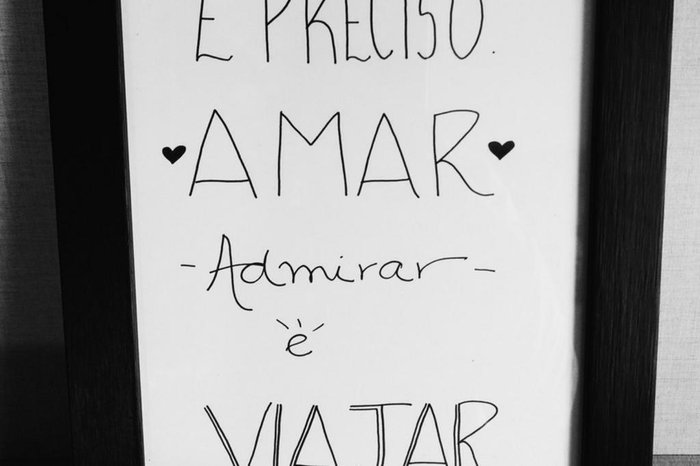 E PRECISO.
♥ AMAR ♥
- Admirar -
e
VIAJAR